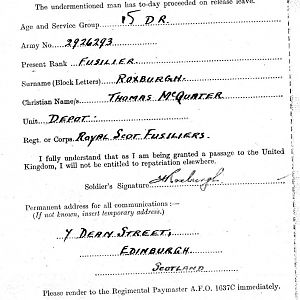 The undermentioned man has to-day proceeded on release leave.
Age and Service Group 15 D.R.
Army No. 2926293
Present Rank FUSILIER
Surname (Block Letters) ROXBURGH.
Christian Name/s THOMAS MCQUATER
Unit DEPOT.
Regt. or Corps ROYAL SCOT FUSILIERS.
I fully understand that as I am being granted a passage to the United
Kingdom, I will not be entitled to repatriation elsewhere.
Soldier's Signature Roxburgh
Permanent address for all communications :—
(If not known, insert temporary address.)
7 DEAN STREET,
EDINBURGH
SCOTLAND
Please render to the Regimental Paymaster A.F.O. 1637C immediately.